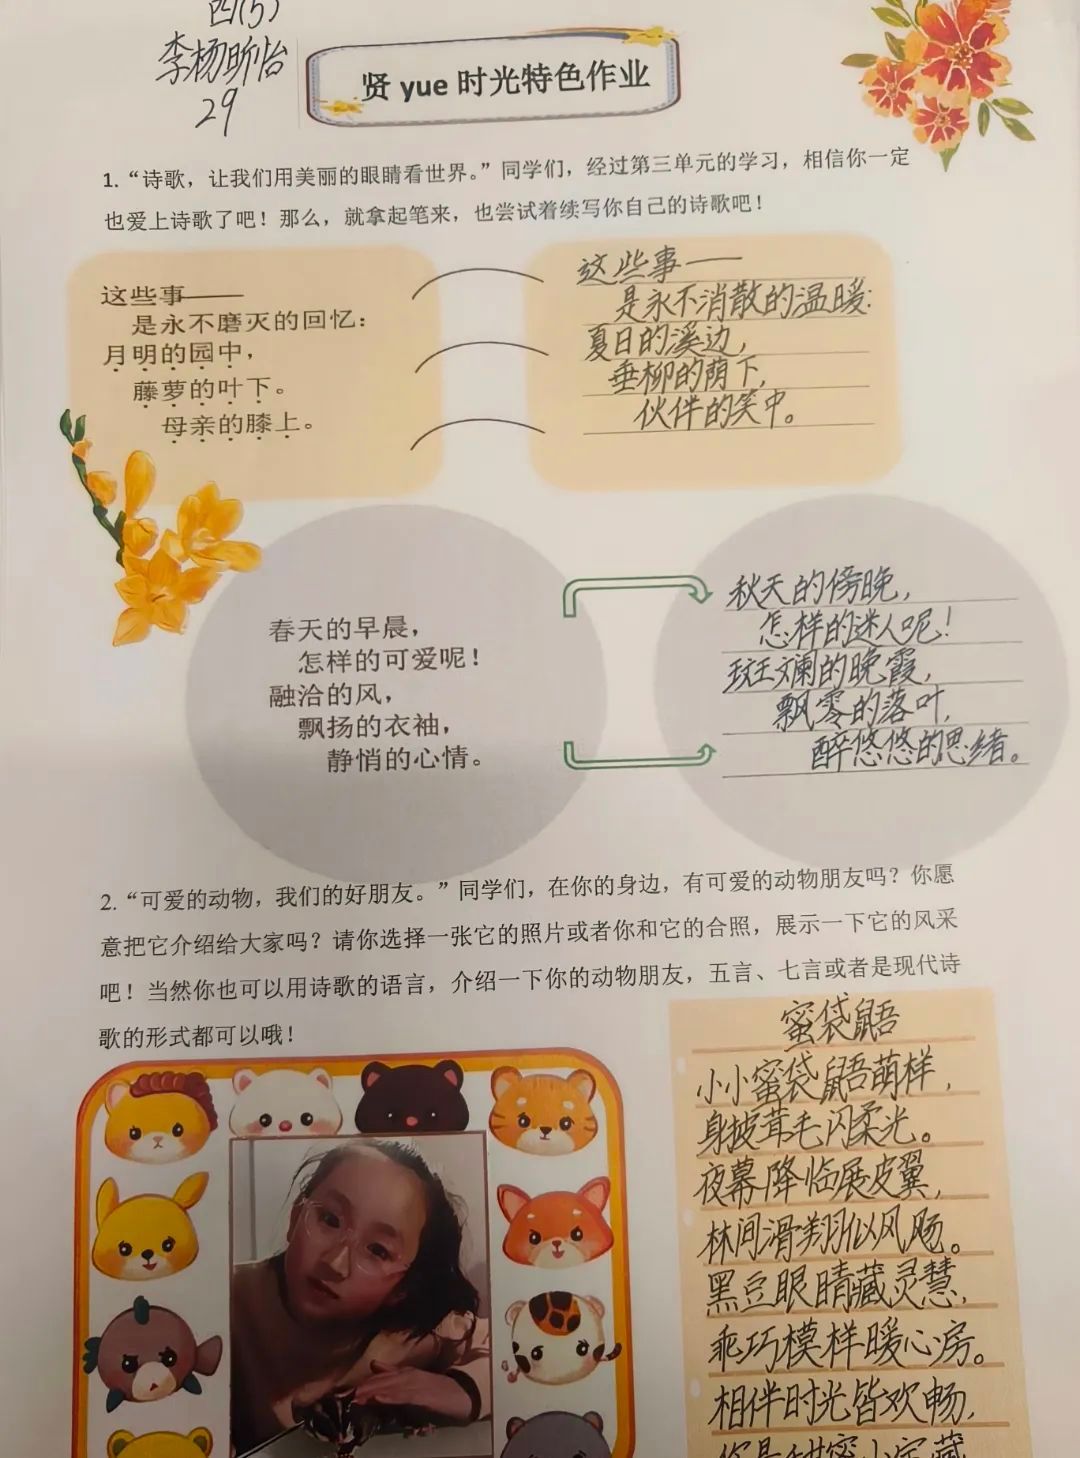 四(5)
李杨昕怡
29
贤 yue 时光特色作业
1. “诗歌，让我们用美丽的眼睛看世界。”同学们，经过第三单元的学习，相信你一定
也爱上诗歌了吧！那么，就拿起笔来，也尝试着续写你自己的诗歌吧！
这些事——
是永不磨灭的回忆：
月明的园中，
藤萝的叶下。
母亲的膝上。
这些事——
是永不消散的温暖：
夏日的溪边，
垂柳的荫下，
伙伴的笑中。
春天的早晨，
怎样的可爱呢！
融洽的风，
飘扬的衣袖，
静悄的心情。
秋天的傍晚，
怎样的迷人呢！
斑斓的晚霞，
飘零的落叶，
醉悠悠的思绪。
2. “可爱的动物，我们的好朋友。”同学们，在你的身边，有可爱的动物朋友吗？你愿
意把它介绍给大家吗？请你选择一张它的照片或者你和它的合照，展示一下它的风采
吧！当然你也可以用诗歌的语言，介绍一下你的动物朋友，五言、七言或者是现代诗
歌的形式都可以哦！
蜜袋鼯
小小蜜袋鼯萌样，
身披茸毛闪柔光。
夜幕降临展皮翼，
林间滑翔似风飏。
黑豆眼睛藏灵慧，
乖巧模样暖心房。
相伴时光皆欢畅，
你是甜蜜小宝藏